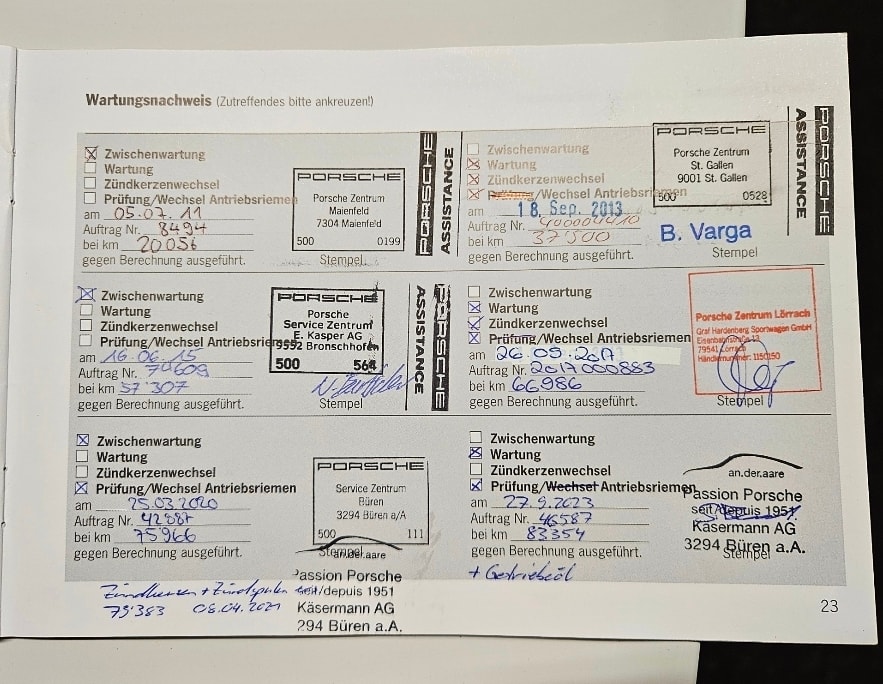 Wartungsnachweis (Zutreffendes bitte ankreuzen!)
Zwischenwartung
Wartung
Zündkerzenwechsel
Prüfung/Wechsel Antriebsriemen
am 05.07.11
Auftrag Nr. 8494
bei km 20056
gegen Berechnung ausgeführt.
PORSCHE
Porsche Zentrum
Maienfeld
7304 Maienfeld
500 0199
Stempel
PORSCHE
ASSISTANCE
Zwischenwartung
Wartung
Zündkerzenwechsel
Prüfung/Wechsel Antriebsriemen
am 18. Sep. 2013
Auftrag Nr. 400004410
bei km 37'500
gegen Berechnung ausgeführt.
PORSCHE
Porsche Zentrum
St. Gallen
9001 St. Gallen
500 0528
B. Varga
Stempel
PORSCHE
ASSISTANCE
Zwischenwartung
Wartung
Zündkerzenwechsel
Prüfung/Wechsel Antriebsriemen
am 16.06.15
Auftrag Nr. 74609
bei km 57'307
gegen Berechnung ausgeführt.
PORSCHE
Porsche
Service Zentrum
E. Kasper AG
9552 Bronschhofen
500 564
Stempel
PORSCHE
ASSISTANCE
Zwischenwartung
Wartung
Zündkerzenwechsel
Prüfung/Wechsel Antriebsriemen
am 26.09.2017
Auftrag Nr. 2017000883
bei km 66986
gegen Berechnung ausgeführt.
Porsche Zentrum Lörrach
Graf Hardenberg Sportwagen GmbH
Eisenbahnstraße
79541 Lörrach
Händlernummer: 1150150
Stempel
Zwischenwartung
Wartung
Zündkerzenwechsel
Prüfung/Wechsel Antriebsriemen
am 25.03.2020
Auftrag Nr. 42887
bei km 75966
gegen Berechnung ausgeführt.
PORSCHE
Service Zentrum
Büren
3294 Büren a/A
500 111
Stempel
an.der.aare
Passion Porsche
seit/depuis 1951
Käsermann AG
294 Büren a.A.
Zündkerzen + Zündspulen
79'383 08.04.2021
Zwischenwartung
Wartung
Zündkerzenwechsel
Prüfung/Wechsel Antriebsriemen
am 27.9.2023
Auftrag Nr. 46587
bei km 83354
gegen Berechnung ausgeführt.
an.der.aare
Passion Porsche
seit/depuis 1951
Käsermann AG
3294 Büren a.A.
Stempel
+ Getriebeöl
23